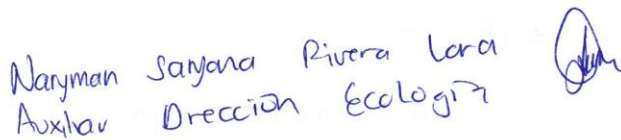 Naryman Sanjana Rivera Lara
Auxiliar Dirección Ecología